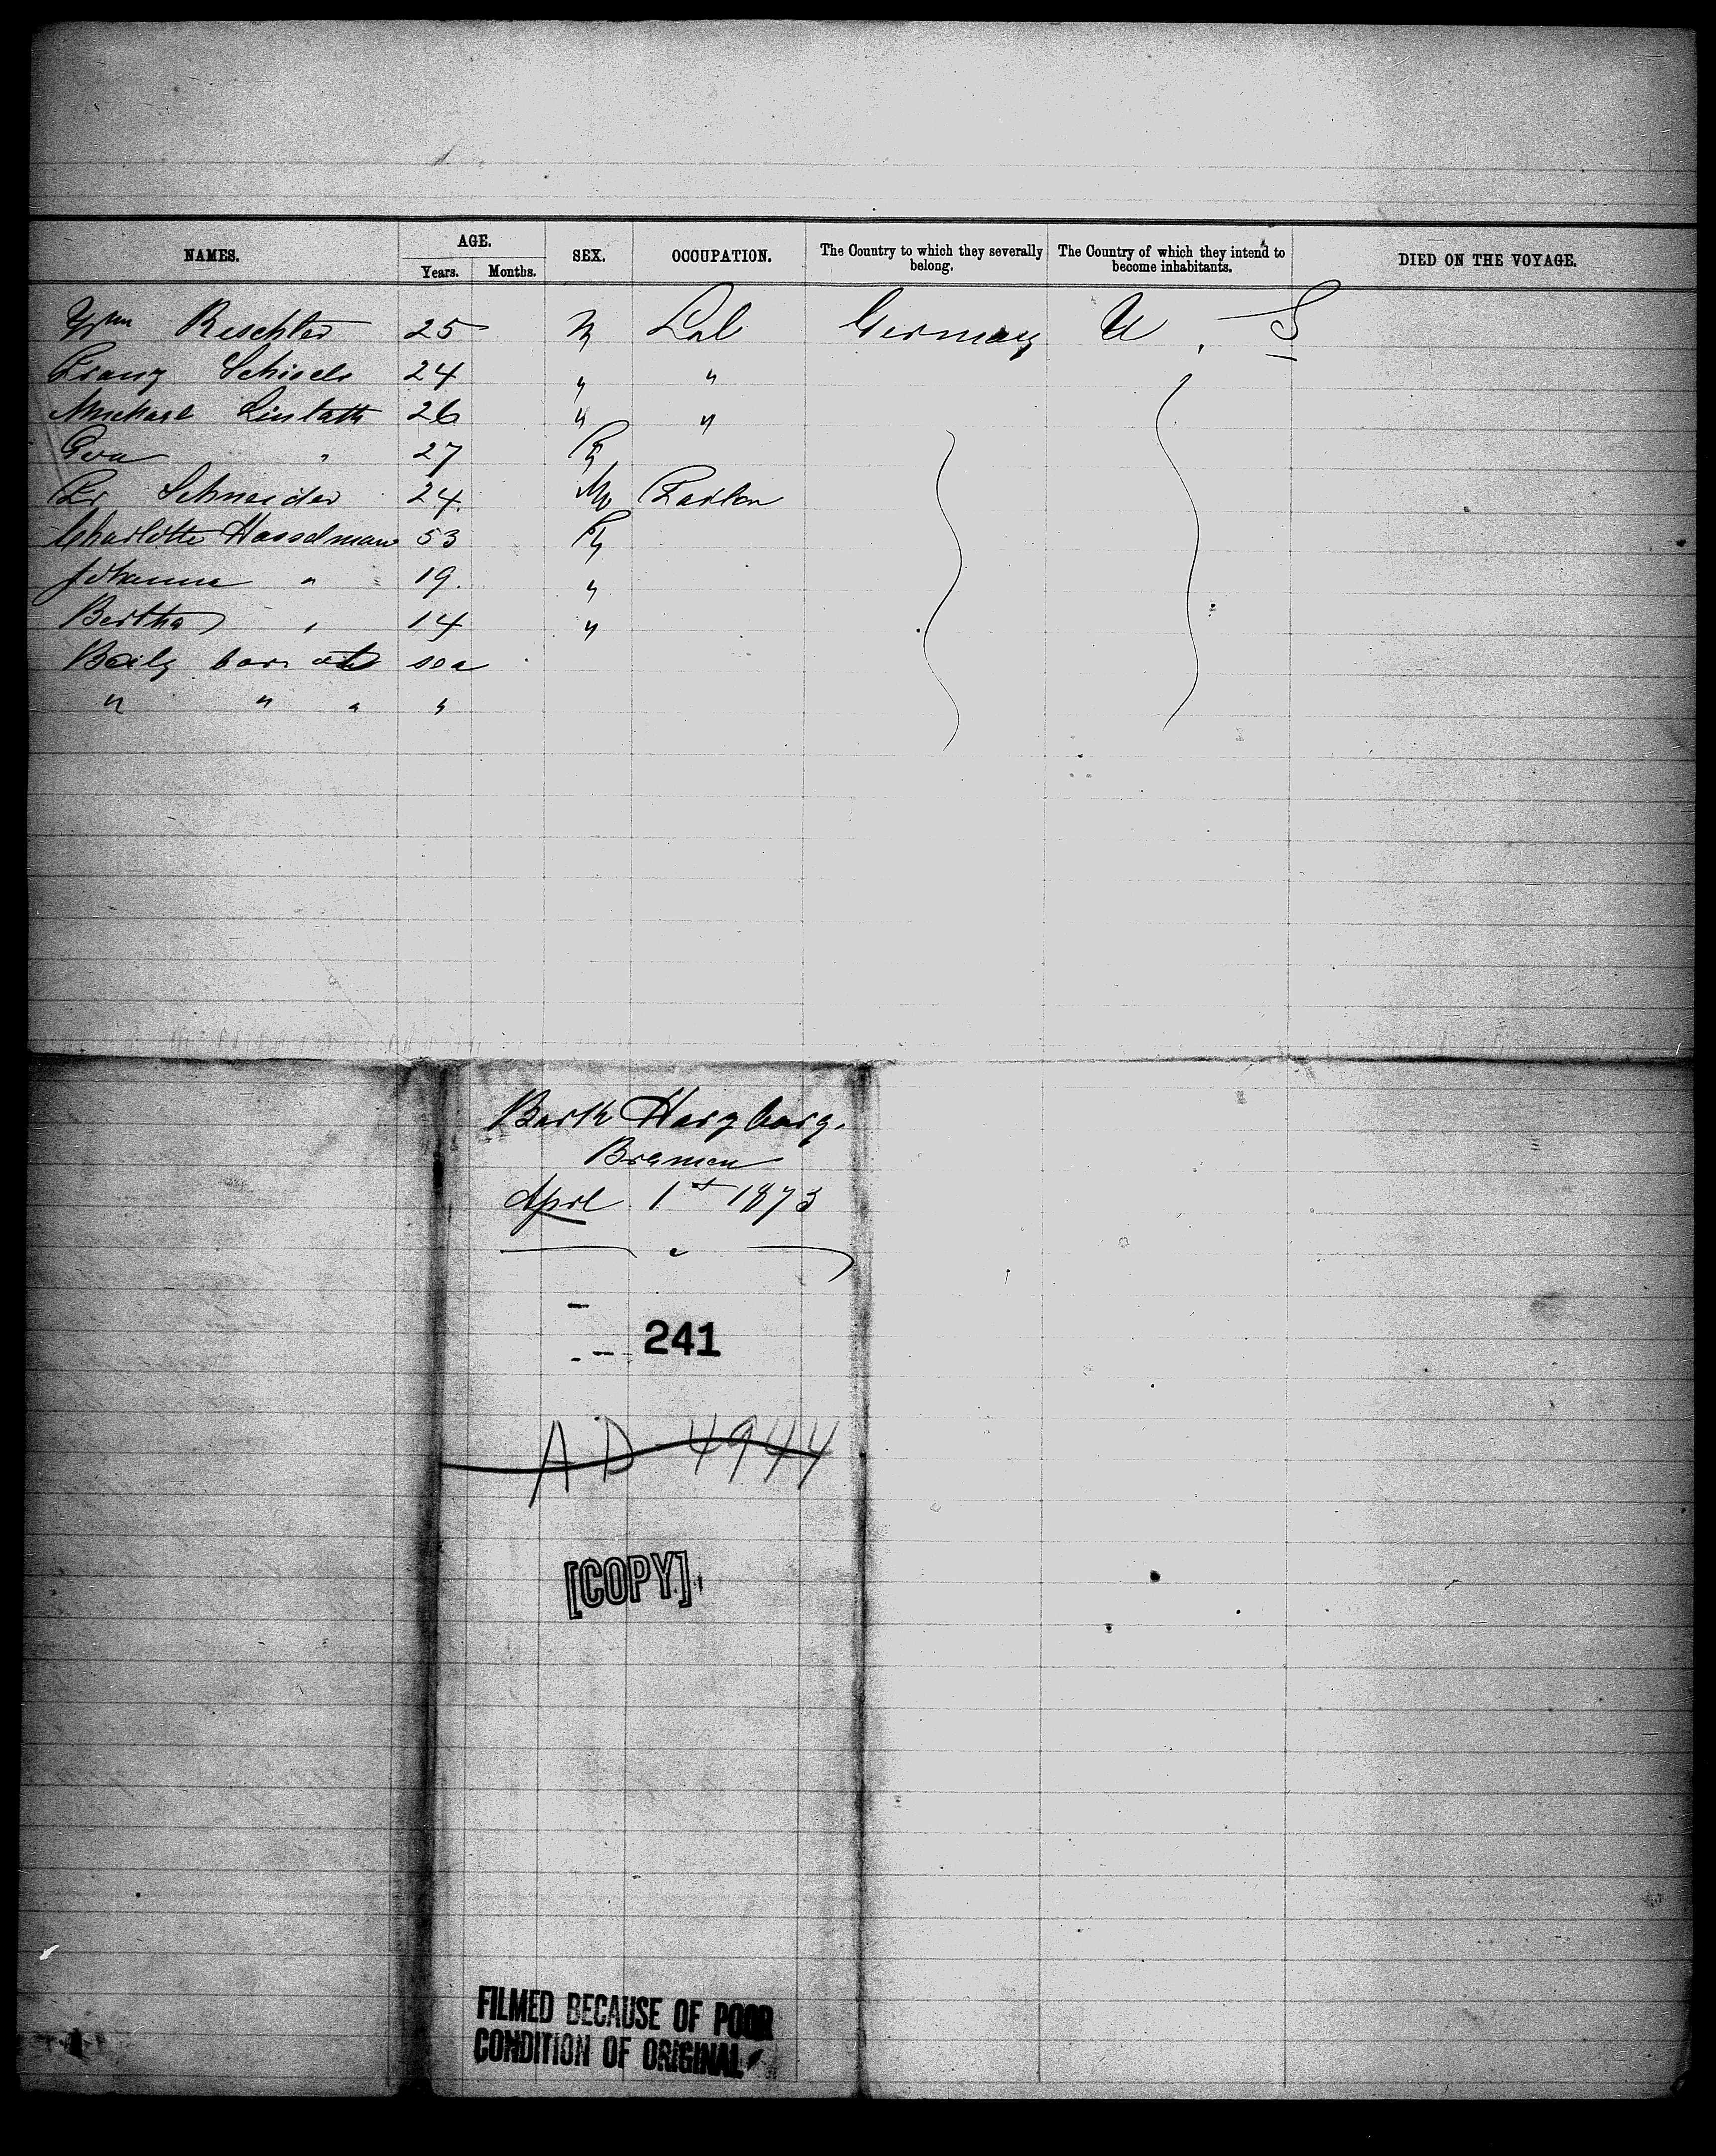 NAMES. AGE. SEX. OCCUPATION. The Country to which they severally belong. The Country of which they intend to become inhabitants. DIED ON THE VOYAGE.
Years. Months.
Wm 25 M Lab Germany U. S
Franz 24 " "
Michael 26 " "
Eva " 27 F
Fr Schneider 24. M
Charlotte Hasselman 53 F
Johanna " 19. "
Bertha " 14 "
born at sea
" " " "
Bark Harzburg.
Bremen
April 1st 1873
241
AD 4944
[COPY]
FILMED BECAUSE OF POOR
CONDITION OF ORIGINAL